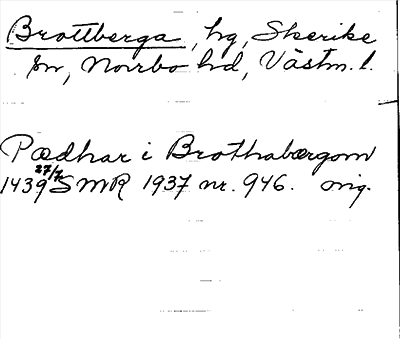 Brottberga, hg, Skerike
sn, Norrbo hd, Västm. l.
Pædhar i Brothabærgom
1439 27/7 SMR 1937 nr. 946. orig.